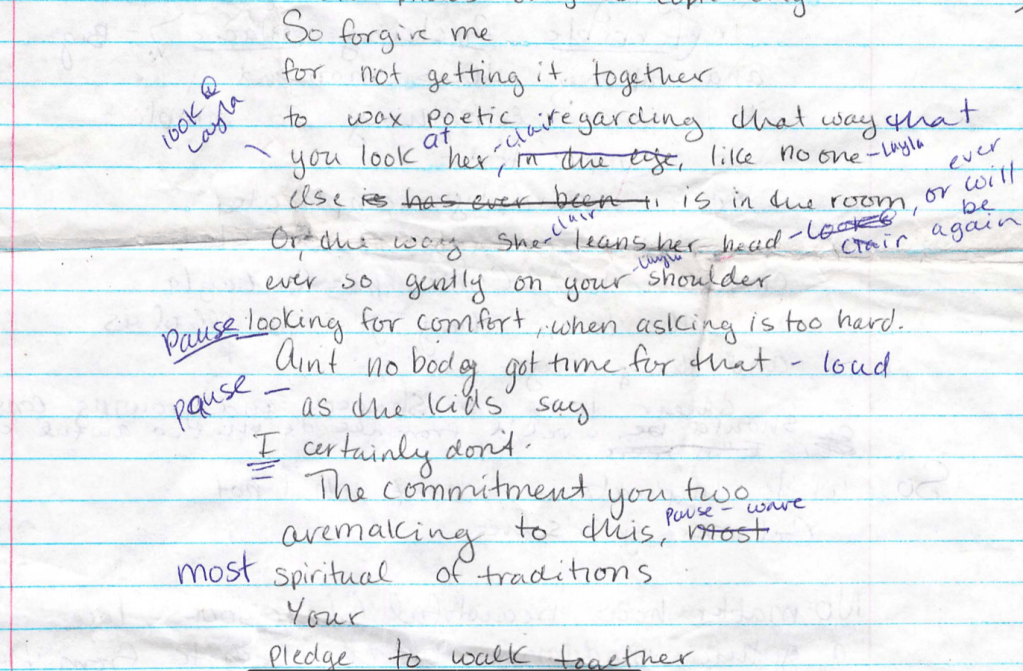 So forgive me
for not getting it together
to wax poetic regarding that way that
look @ Layla
you look at her, -clair in the eye, like no one -Layla
else is has ever been is in the room, or will ever be again
Or the way she -clair leans her head - look @ clair
ever so gently on your -Layla shoulder
Pause looking for comfort, when asking is too hard.
Aint no body got time for that - loud
pause - as the kids say
I certainly don't.
The commitment you two
aremaking to this, pause - wave most
most spiritual of traditions
Your
pledge to walk together